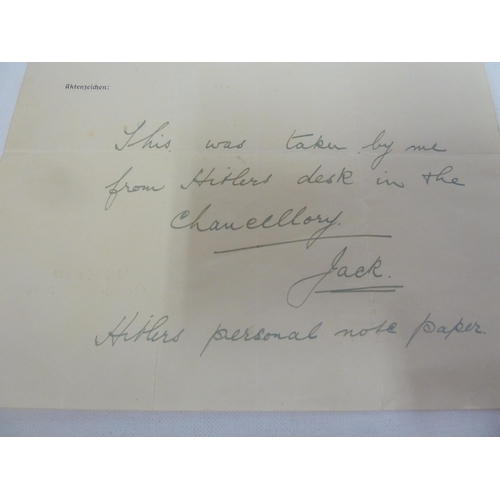 Aktenzeichen:
This was taken by me
from Hitlers desk in the
Chancellory.
Jack.
Hitlers personal note paper.